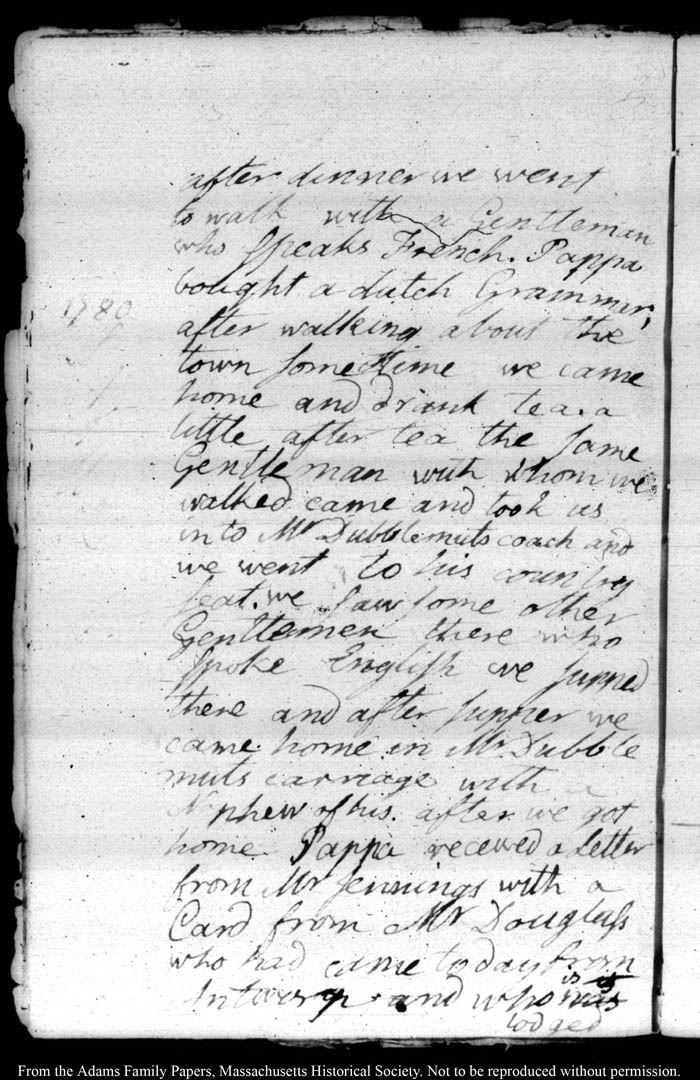 after dinner we went
to walk with a Gentleman
who speaks French. Pappa
bought a dutch Grammer,
1780
after walking about the
town some time we came
home and drank tea. a
little after tea the same
Gentleman with whom we
walked came and took us
into Mr Dubblemuts coach and
we went to his country
seat. we saw some other
Gentlemen there who
spoke English we supped
there and after supper we
came home in Mr Dubble
muts carriage with a
Nephew of his. after we got
home Pappa received a letter
from Mr Jennings with a
Card from Mr Douglass
who had came to day from
Antwerp and who was is
lodged
From the Adams Family Papers, Massachusetts Historical Society. Not to be reproduced without permission.